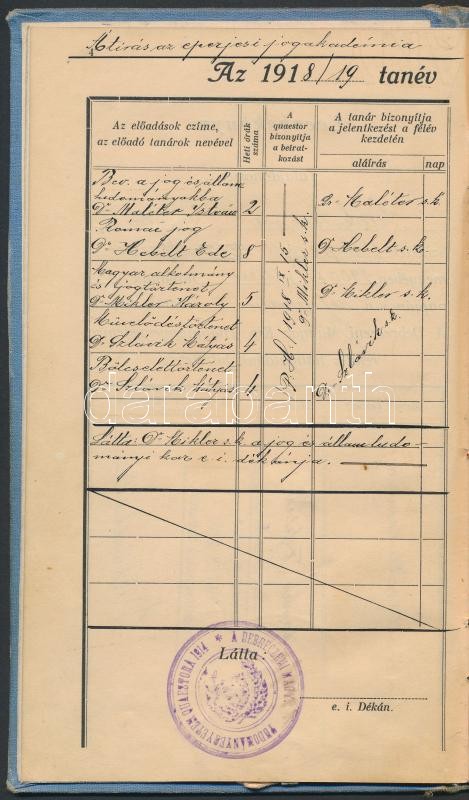 Átírás az eperjesi jogakadémia
Az 1918/19 tanév
Az előadások czíme,
az előadó tanárok nevével
Heti órák
száma
A
quaestor
bizonyítja
a beirat-
kozást
A tanár bizonyítja
a jelentkezést a félév
kezdetén
aláírás
nap
Bev. a jog és állam
tudományokba
Dr Maléter István 2 Dr Maléter s.k.
Római jog
Dr Hebelt Ede 8 Dr Hebelt s.k.
Magyar alkotmány
és jogtörténet
Dr Mikler Károly 5 Dr Mikler s.k.
Művelődéstörténet
Dr Szlávik Mátyás 4
Bölcselettörténet
Dr Szlávik Mátyás 4
Dr Szlávik s.k.
P.H. 1918 IX 15
Dr Mikler s.k.
darabanth
Látta: Dr Mikler s.k. a jog és államtudo-
mányi kar e. i. dékánja.
Látta:
e. i. Dékán.
* A DEBRECZENI MAGY. TUDOMÁNYEGYETEM QUAESTORA 1914